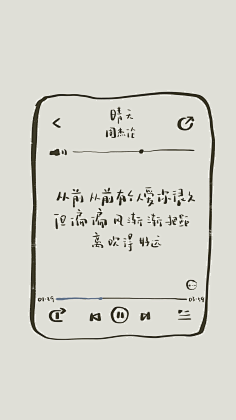 晴天
周杰伦
从前从前有个人爱你很久
但偏偏风渐渐把距
离吹得好远
01:29
01:29